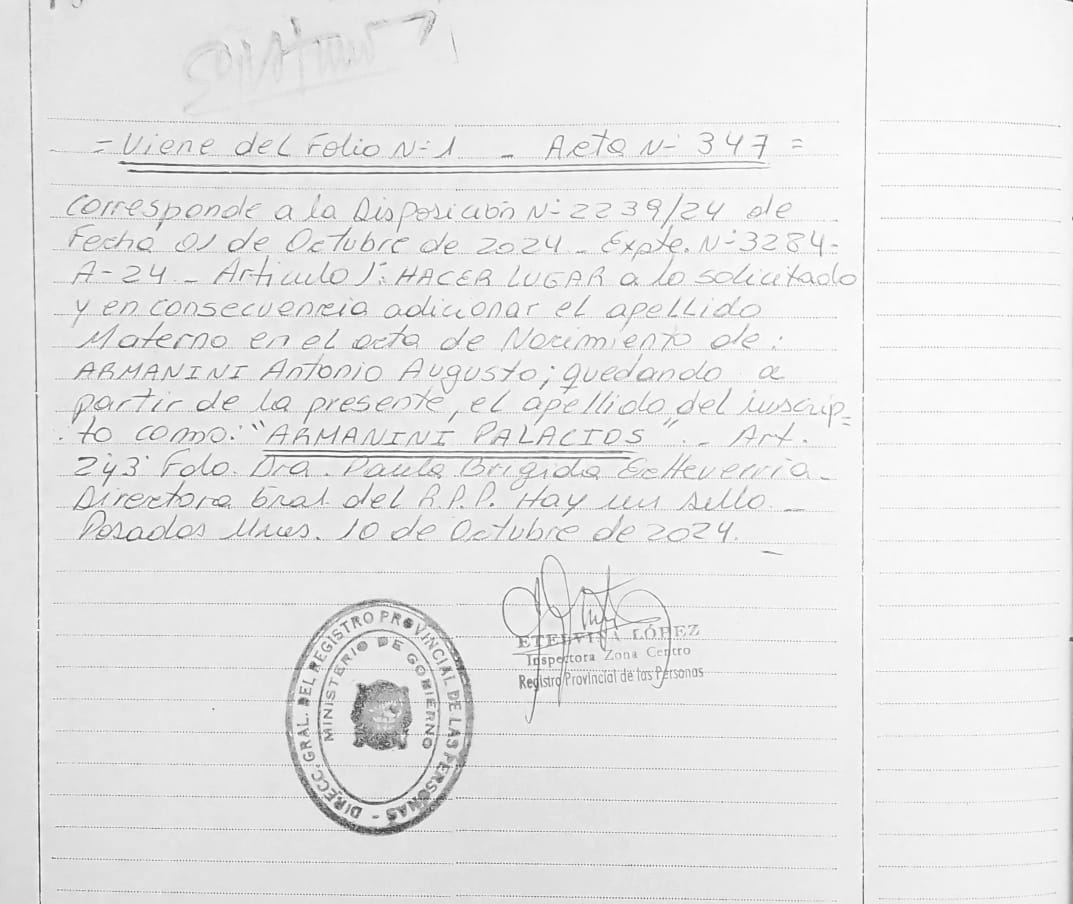 = Viene del Folio N: 1 _ Acta N: 347 =
Corresponde a la Disposición N: 2239/24 de
Fecha 01 de Octubre de 2024 _ Expte. N: 3284-
A-24 _ Artículo 1: HACER LUGAR a lo solicitado
y en consecuencia adicionar el apellido
Materno en el acta de Nacimiento de:
ARMANINI Antonio Augusto; quedando a
partir de la presente, el apellido del inscrip=
to como: "ARMANINI PALACIOS". _ Art.
2y3 Fdo. Dra. Paula Brigida Echeverria _
Directora Gral del R.P.P. Hay un sello. _
Posadas Mnes. 10 de Octubre de 2024. _
ETELVINA LÓPEZ
Inspectora Zona Centro
Registro Provincial de las Personas
DIRECC. GRAL. DEL REGISTRO PROVINCIAL DE LAS PERSONAS -
MINISTERIO DE GOBIERNO